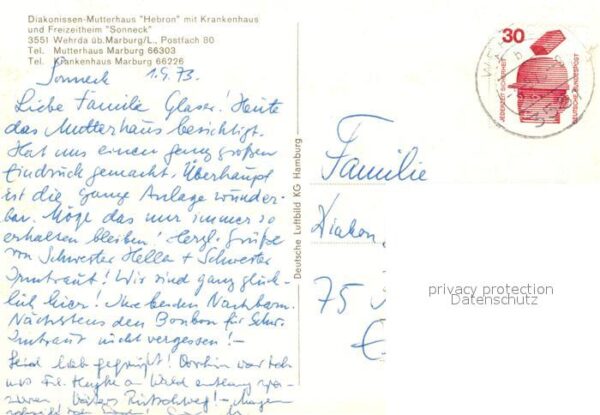 Diakonissen-Mutterhaus "Hebron" mit Krankenhaus
und Freizeitheim "Sonneck"
3551 Wehrda üb.Marburg/L., Postfach 80
Tel. Mutterhaus Marburg 66303
Tel. Krankenhaus Marburg 66226
Sonneck 1.9.73.
Liebe Familie Glaser! Heute
das Mutterhaus besichtigt.
Hat uns einen ganz großen
Eindruck gemacht. Überhaupt
ist die ganze Anlage wunder-
bar. Möge das nur immer so
erhalten bleiben! Herzl. Grüße
von Schwester Hella + Schwester
Irmtraut! Wir sind ganz glück-
lich hier! Ihre beiden Nachbarn.
Nächstens den Bonbon für Schw.
Irmtraut nicht vergessen! –
Seid lieb gegrüßt!
am Wald entlang
Deutsche Luftbild KG Hamburg
30
JEDERZEIT SICHERHEIT
DEUTSCHE BUNDESPOST
Familie
Diakon.
75
privacy protection
Datenschutz